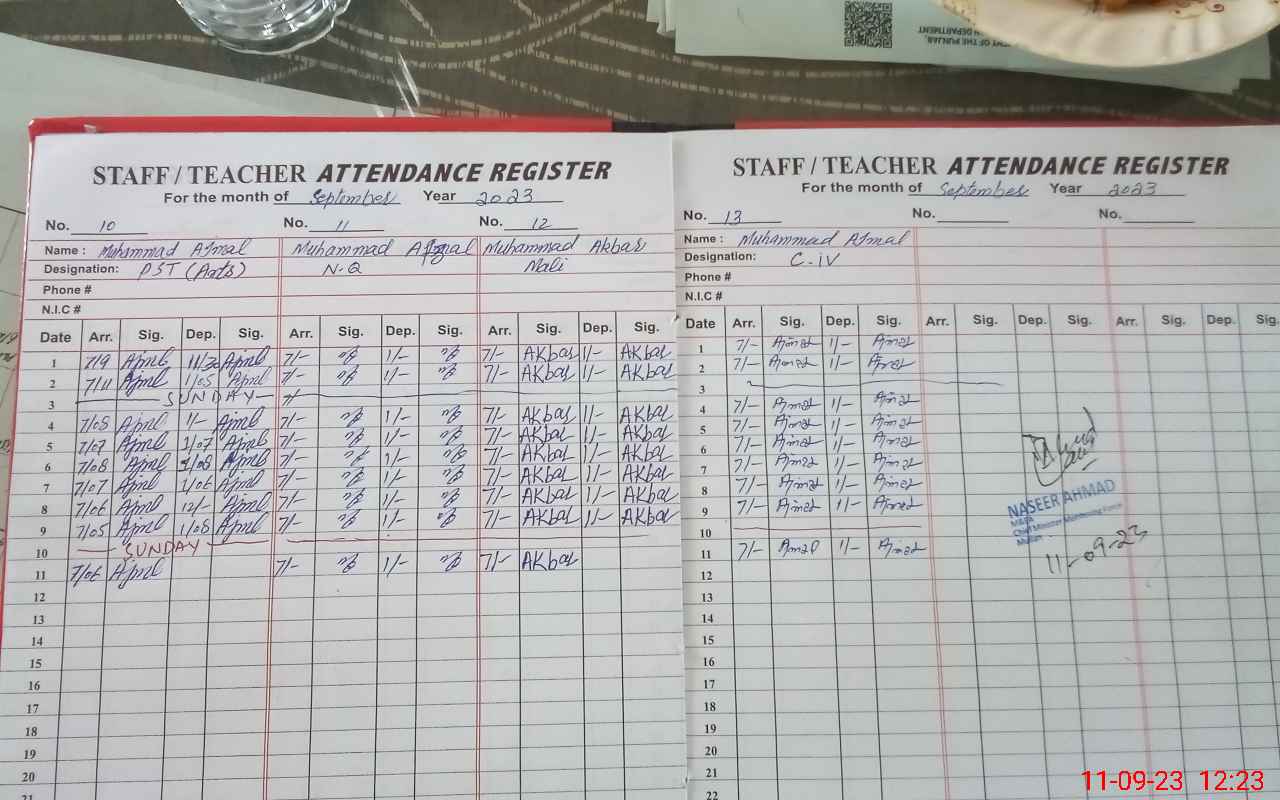 STAFF / TEACHER ATTENDANCE REGISTER
For the month of September Year 2023
No. 10 No. 11 No. 12
Name : Muhammad Ajmal Muhammad Ajmal Muhammad Akbar
Designation: PST (Arts) N-Q Mali
Phone #
N.I.C #
Date Arr. Sig. Dep. Sig. Arr. Sig. Dep. Sig. Arr. Sig. Dep. Sig.
1 7/9 Ajml 11/30 Ajml 7/- 1/- 7/- AKbar 1/- AKbar
2 7/11 Ajml 1/05 Ajml 7/- 1/- 7/- AKbar 1/- AKbar
3 SUNDAY
4 7/05 Ajml 1/- Ajml 7/- 1/- 7/- AKbar 1/- AKbar
5 7/07 Ajml 1/07 Ajml 7/- 1/- 7/- AKbar 1/- AKbar
6 7/08 Ajml 1/08 Ajml 7/- 1/- 7/- AKbar 1/- AKbar
7 7/07 Ajml 1/06 Ajml 7/- 1/- 7/- AKbar 1/- AKbar
8 7/06 Ajml 12/- Ajml 7/- 1/- 7/- AKbar 1/- AKbar
9 7/05 Ajml 1/08 Ajml 7/- 1/- 7/- AKbar 1/- AKbar
10 SUNDAY
11 7/06 Ajml 7/- 1/- 7/- AKbar
12
13
14
15
16
17
18
19
20
21
STAFF / TEACHER ATTENDANCE REGISTER
For the month of September Year 2023
No. 13 No. No.
Name : Muhammad Ajmal
Designation: C-iV
Phone #
N.I.C #
Date Arr. Sig. Dep. Sig. Arr. Sig. Dep. Sig. Arr. Sig. Dep. Sig.
1 7/- Ajmal 1/- Ajmal
2 7/- Ajmal 1/- Ajmal
3
4 7/- Ajmal 1/- Ajmal
5 7/- Ajmal 1/- Ajmal
6 7/- Ajmal 1/- Ajmal
7 7/- Ajmal 1/- Ajmal
8 7/- Ajmal 1/- Ajmal
9 7/- Ajmal 1/- Ajmal
10
11 7/- Ajmal 1/- Ajmal
12
13
14
15
16
17
18
19
20
21
22
NASEER AHMAD
MEA
Chief Minister Monitoring Force
Multan
11-09-23
OF THE PUNJAB,
DEPARTMENT
11-09-23 12:23